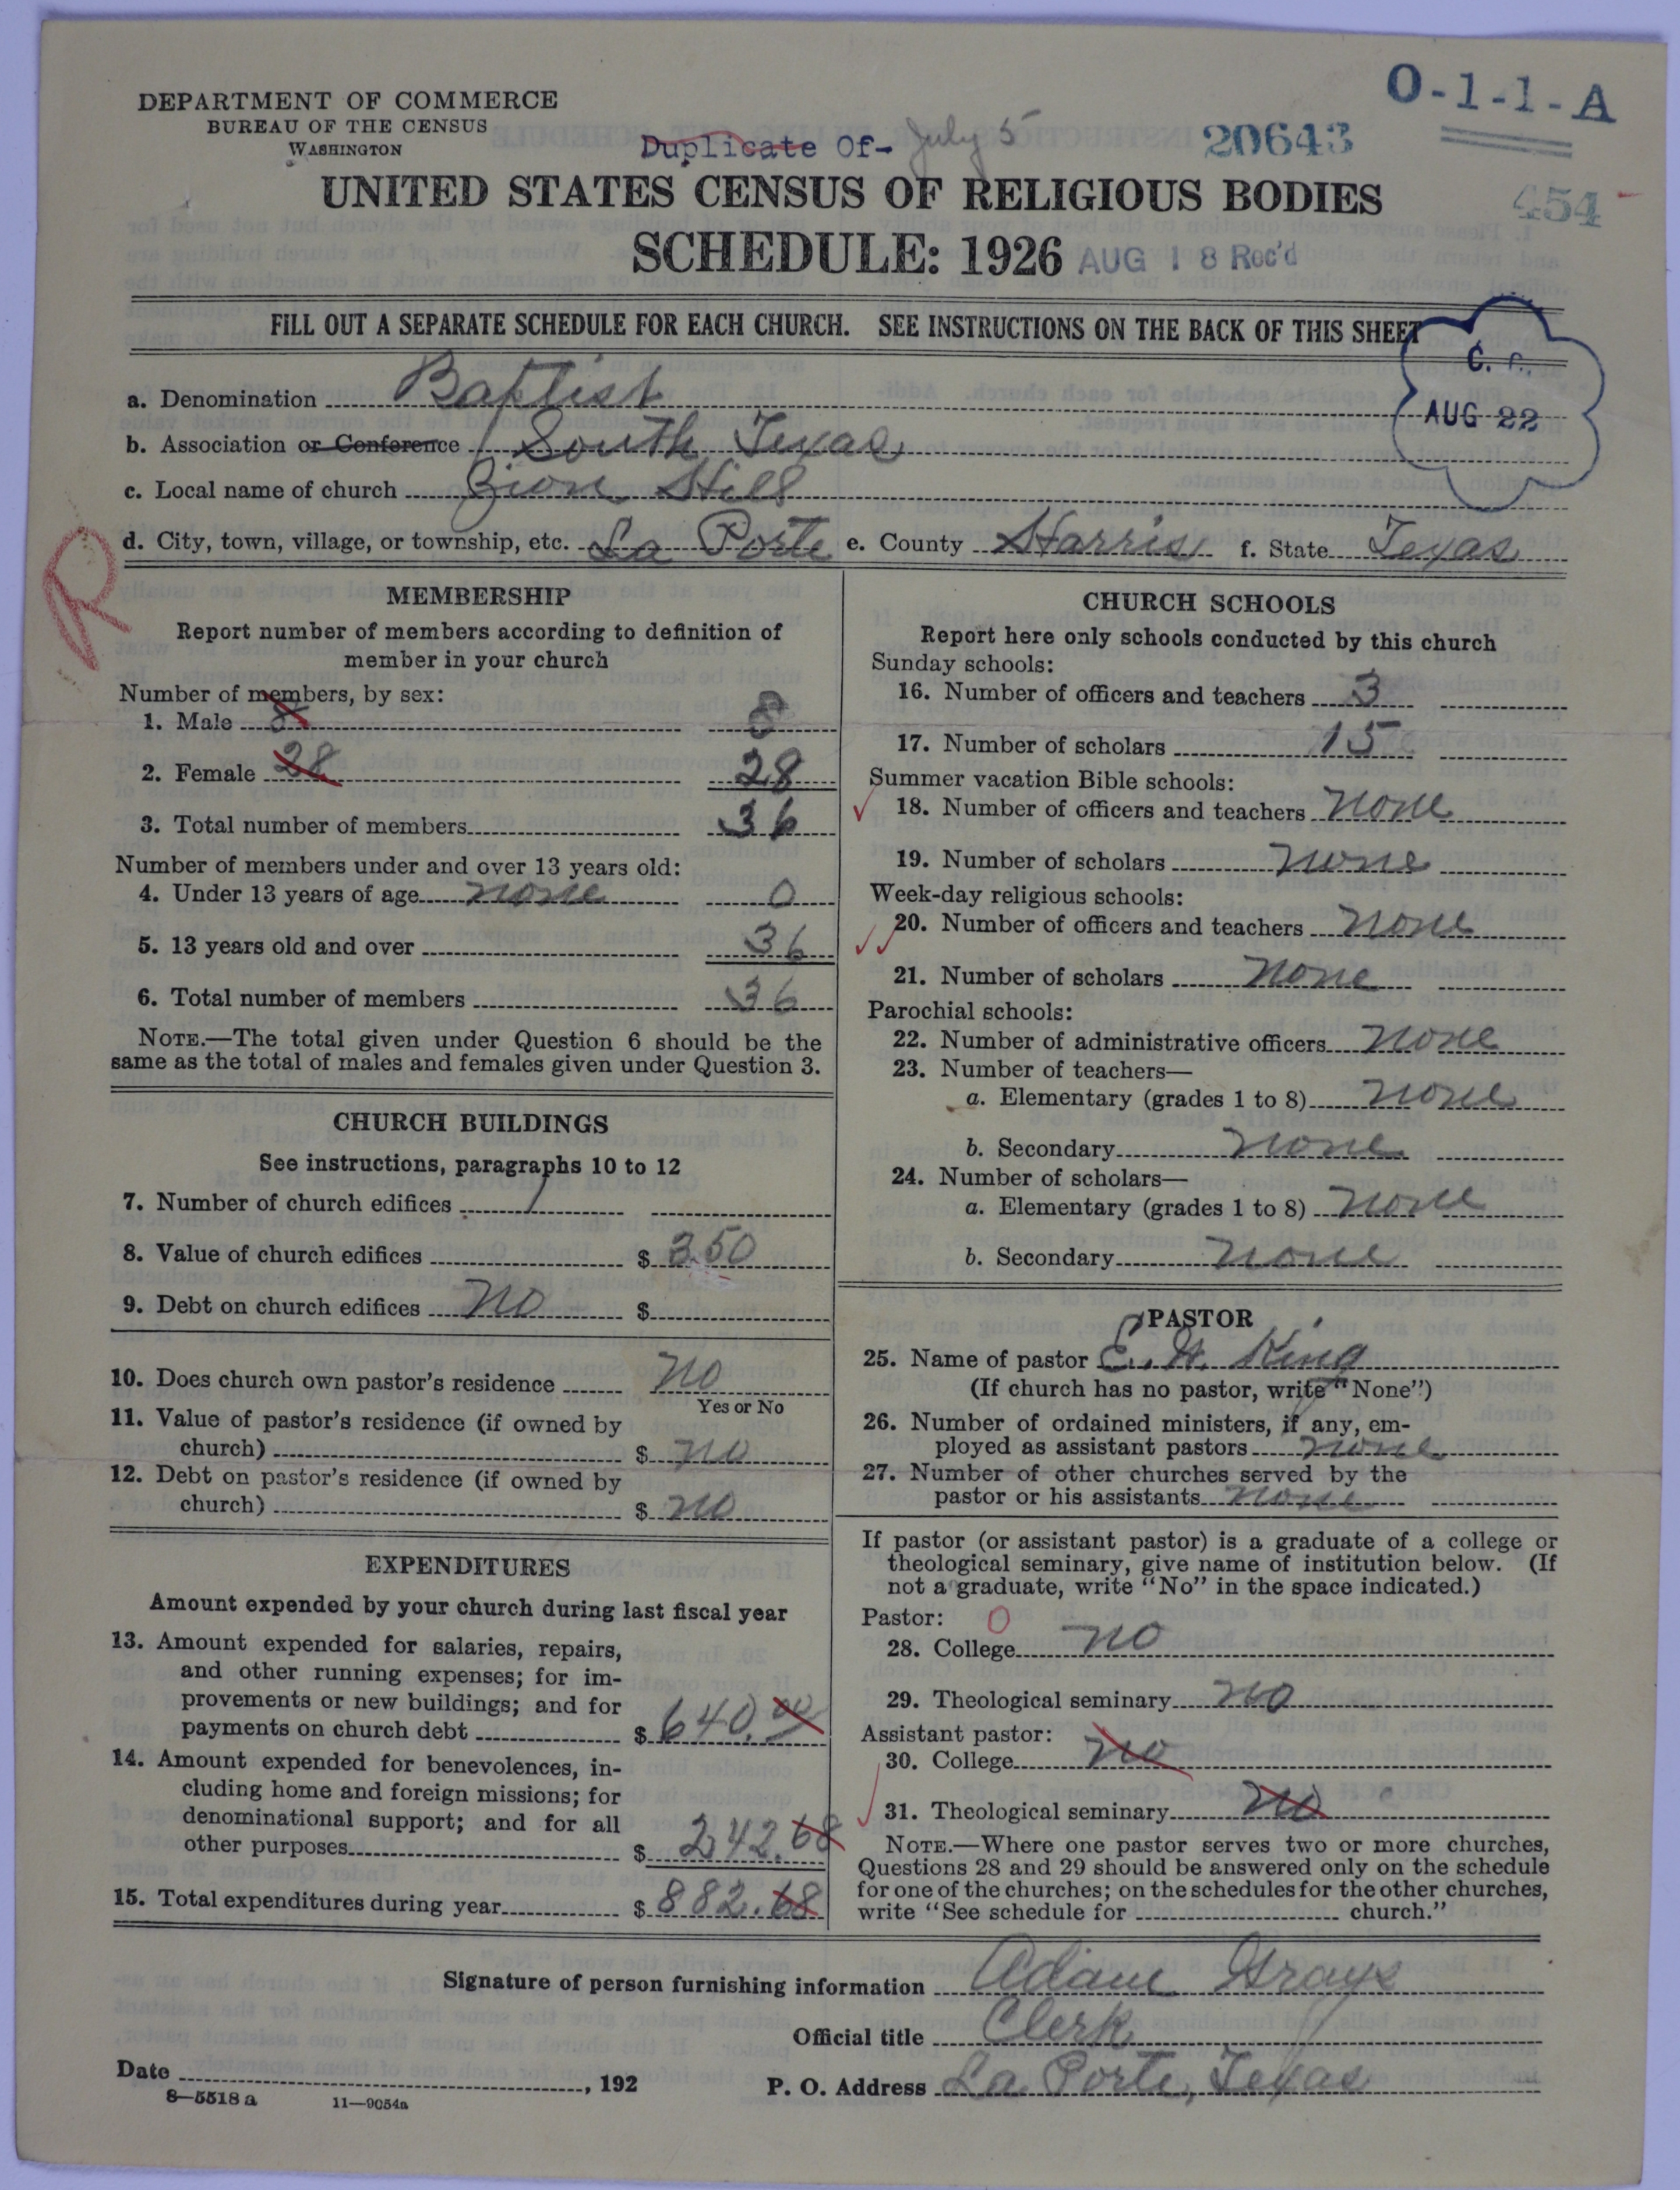 O-1-1-A
DEPARTMENT OF COMMERCE
BUREAU OF THE CENSUS
WASHINGTON
Duplicate Of- July 5 20643
UNITED STATES CENSUS OF RELIGIOUS BODIES
454
SCHEDULE: 1926 AUG 18 Rec'd
FILL OUT A SEPARATE SCHEDULE FOR EACH CHURCH. SEE INSTRUCTIONS ON THE BACK OF THIS SHEET
AUG 22
a. Denomination Baptist
b. Association or Conference South Texas
c. Local name of church Zion Hill
d. City, town, village, or township, etc. La Porte e. County Harris f. State Texas
R
MEMBERSHIP
Report number of members according to definition of
member in your church
Number of members, by sex:
1. Male 8 8
2. Female 28 28
3. Total number of members 36
Number of members under and over 13 years old:
4. Under 13 years of age none 0
5. 13 years old and over 36
6. Total number of members 36
NOTE.—The total given under Question 6 should be the
same as the total of males and females given under Question 3.
CHURCH BUILDINGS
See instructions, paragraphs 10 to 12
7. Number of church edifices 1
8. Value of church edifices $ 350
9. Debt on church edifices no $
10. Does church own pastor's residence no
Yes or No
11. Value of pastor's residence (if owned by
church) $ no
12. Debt on pastor's residence (if owned by
church) $ no
EXPENDITURES
Amount expended by your church during last fiscal year
13. Amount expended for salaries, repairs,
and other running expenses; for im-
provements or new buildings; and for
payments on church debt $ 640.00
14. Amount expended for benevolences, in-
cluding home and foreign missions; for
denominational support; and for all
other purposes $ 242.68
15. Total expenditures during year $ 882.68
CHURCH SCHOOLS
Report here only schools conducted by this church
Sunday schools:
16. Number of officers and teachers 3
17. Number of scholars 15
Summer vacation Bible schools:
18. Number of officers and teachers none
19. Number of scholars none
Week-day religious schools:
20. Number of officers and teachers none
21. Number of scholars none
Parochial schools:
22. Number of administrative officers none
23. Number of teachers—
a. Elementary (grades 1 to 8) none
b. Secondary none
24. Number of scholars—
a. Elementary (grades 1 to 8) none
b. Secondary none
PASTOR
25. Name of pastor E. H. King
(If church has no pastor, write "None")
26. Number of ordained ministers, if any, em-
ployed as assistant pastors none
27. Number of other churches served by the
pastor or his assistants none
If pastor (or assistant pastor) is a graduate of a college or
theological seminary, give name of institution below. (If
not a graduate, write "No" in the space indicated.)
Pastor: 0
28. College no
29. Theological seminary no
Assistant pastor:
30. College no
31. Theological seminary no
NOTE.—Where one pastor serves two or more churches,
Questions 28 and 29 should be answered only on the schedule
for one of the churches; on the schedules for the other churches,
write "See schedule for church."
Signature of person furnishing information Adam Grays
Official title Clerk
Date , 192 P. O. Address La Porte, Texas
8—5518 a 11—9054a